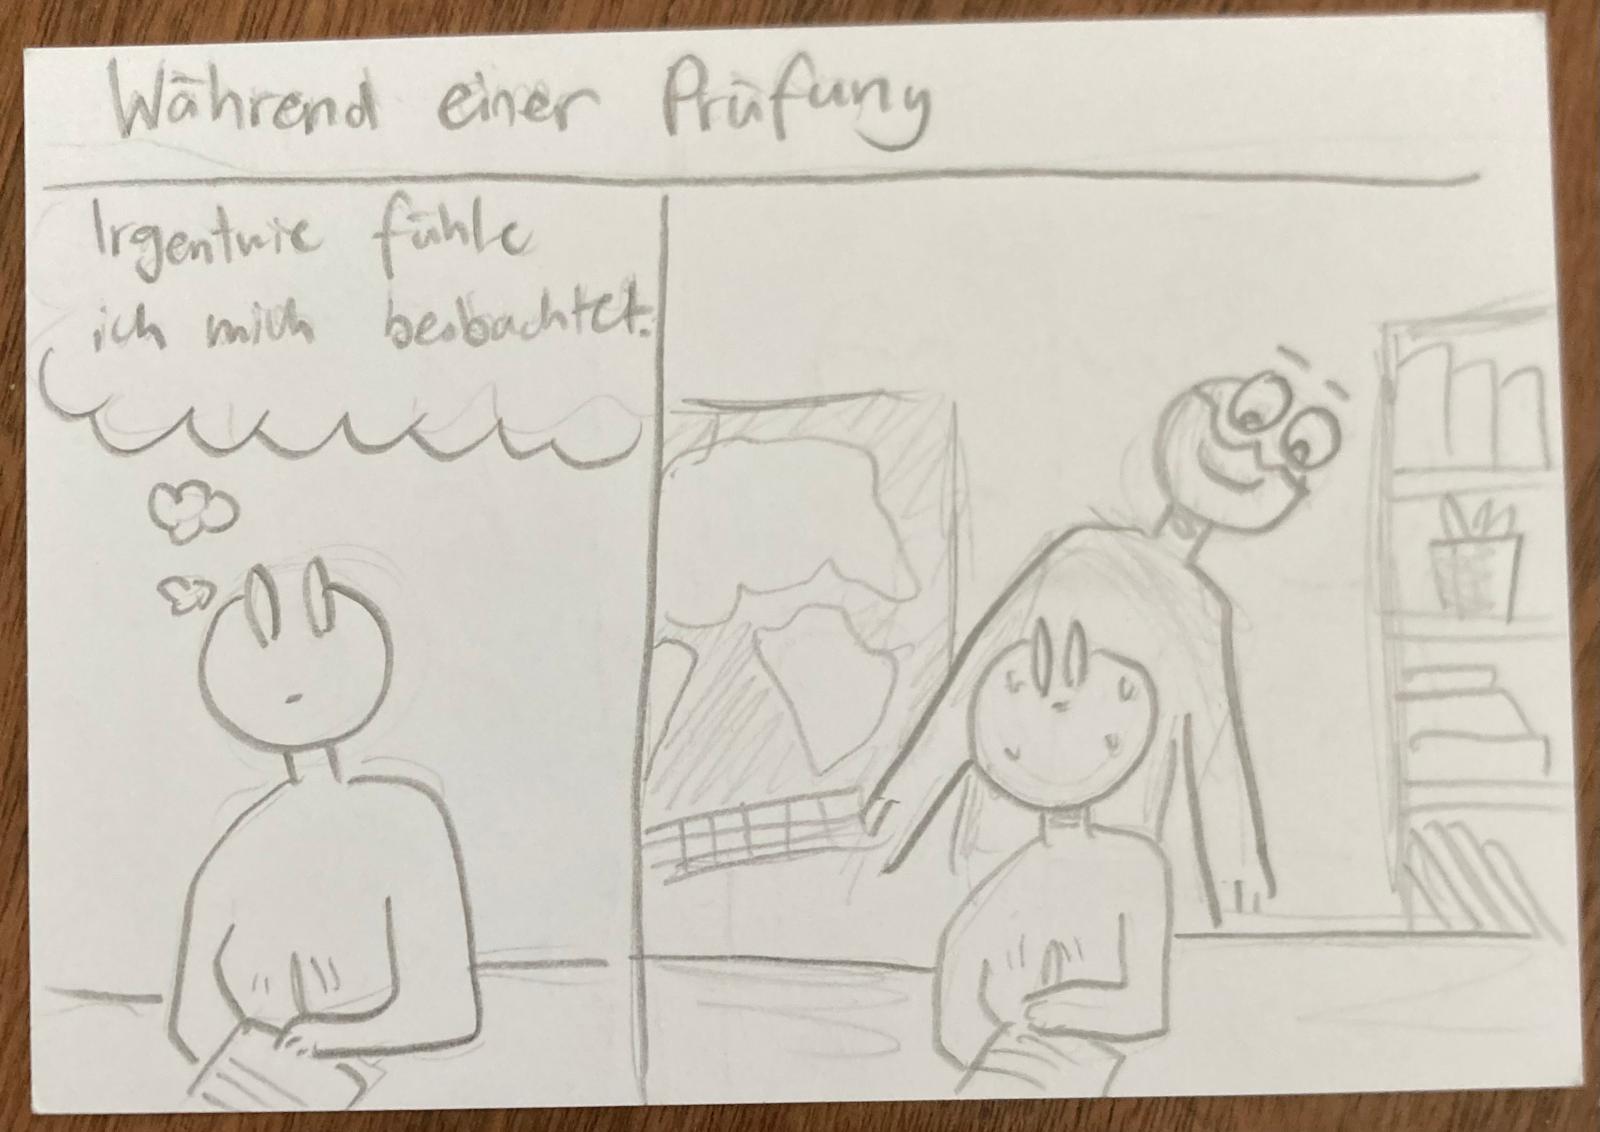 Während einer Prüfung
Irgentwie fühle
ich mich beobachtet.